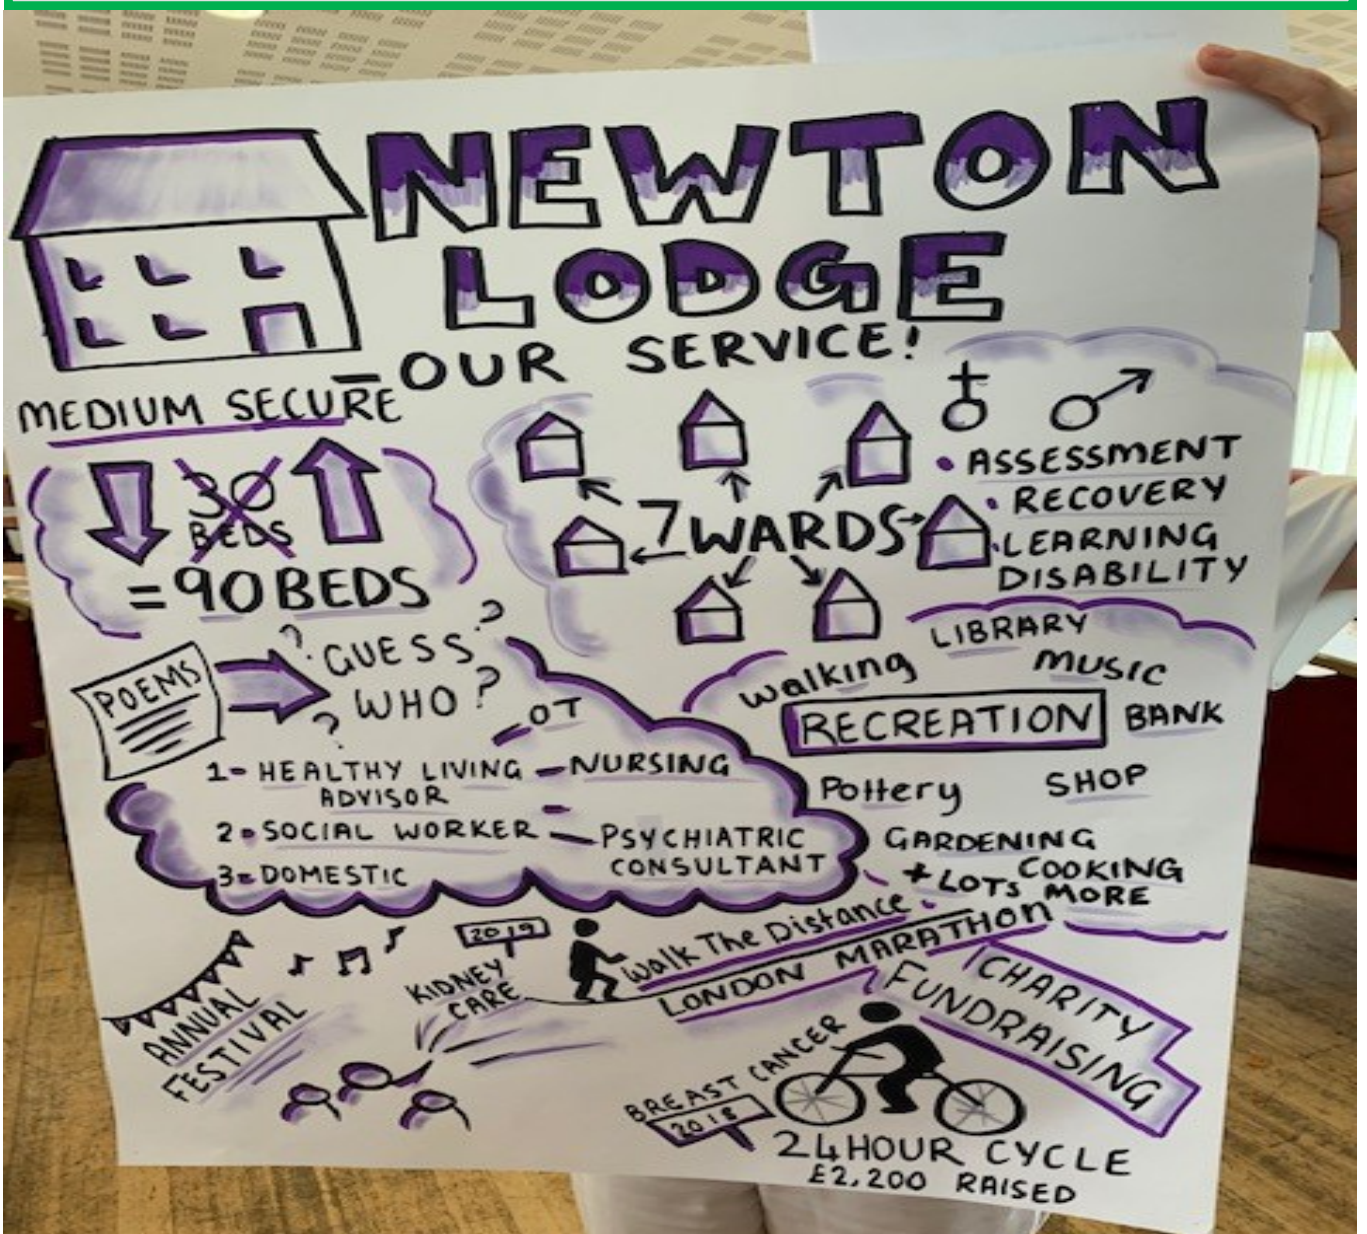 NEWTON
LODGE
- OUR SERVICE!
MEDIUM SECURE
30
BEDS
= 90 BEDS
7 WARDS
• ASSESSMENT
• RECOVERY
• LEARNING
DISABILITY
POEMS
? GUESS ?
? WHO ?
- OT
1- HEALTHY LIVING
ADVISOR
- NURSING
2- SOCIAL WORKER
- PSYCHIATRIC
CONSULTANT
3- DOMESTIC
LIBRARY
Walking
MUSIC
RECREATION
BANK
Pottery
SHOP
GARDENING
COOKING
+ LOTS MORE
ANNUAL
FESTIVAL
2019
KIDNEY
CARE
Walk The Distance
LONDON MARATHON
CHARITY
FUNDRAISING
BREAST CANCER
2018
24 HOUR CYCLE
£2,200 RAISED